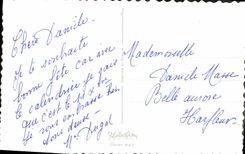 Chère Danièle
Je te souhaite
bonne fête car sur
le calendrier je vois
que c'est le
Je vous embrasse
tous deux
Mademoiselle
Danièle Masse
Belle aurore
Harfleur